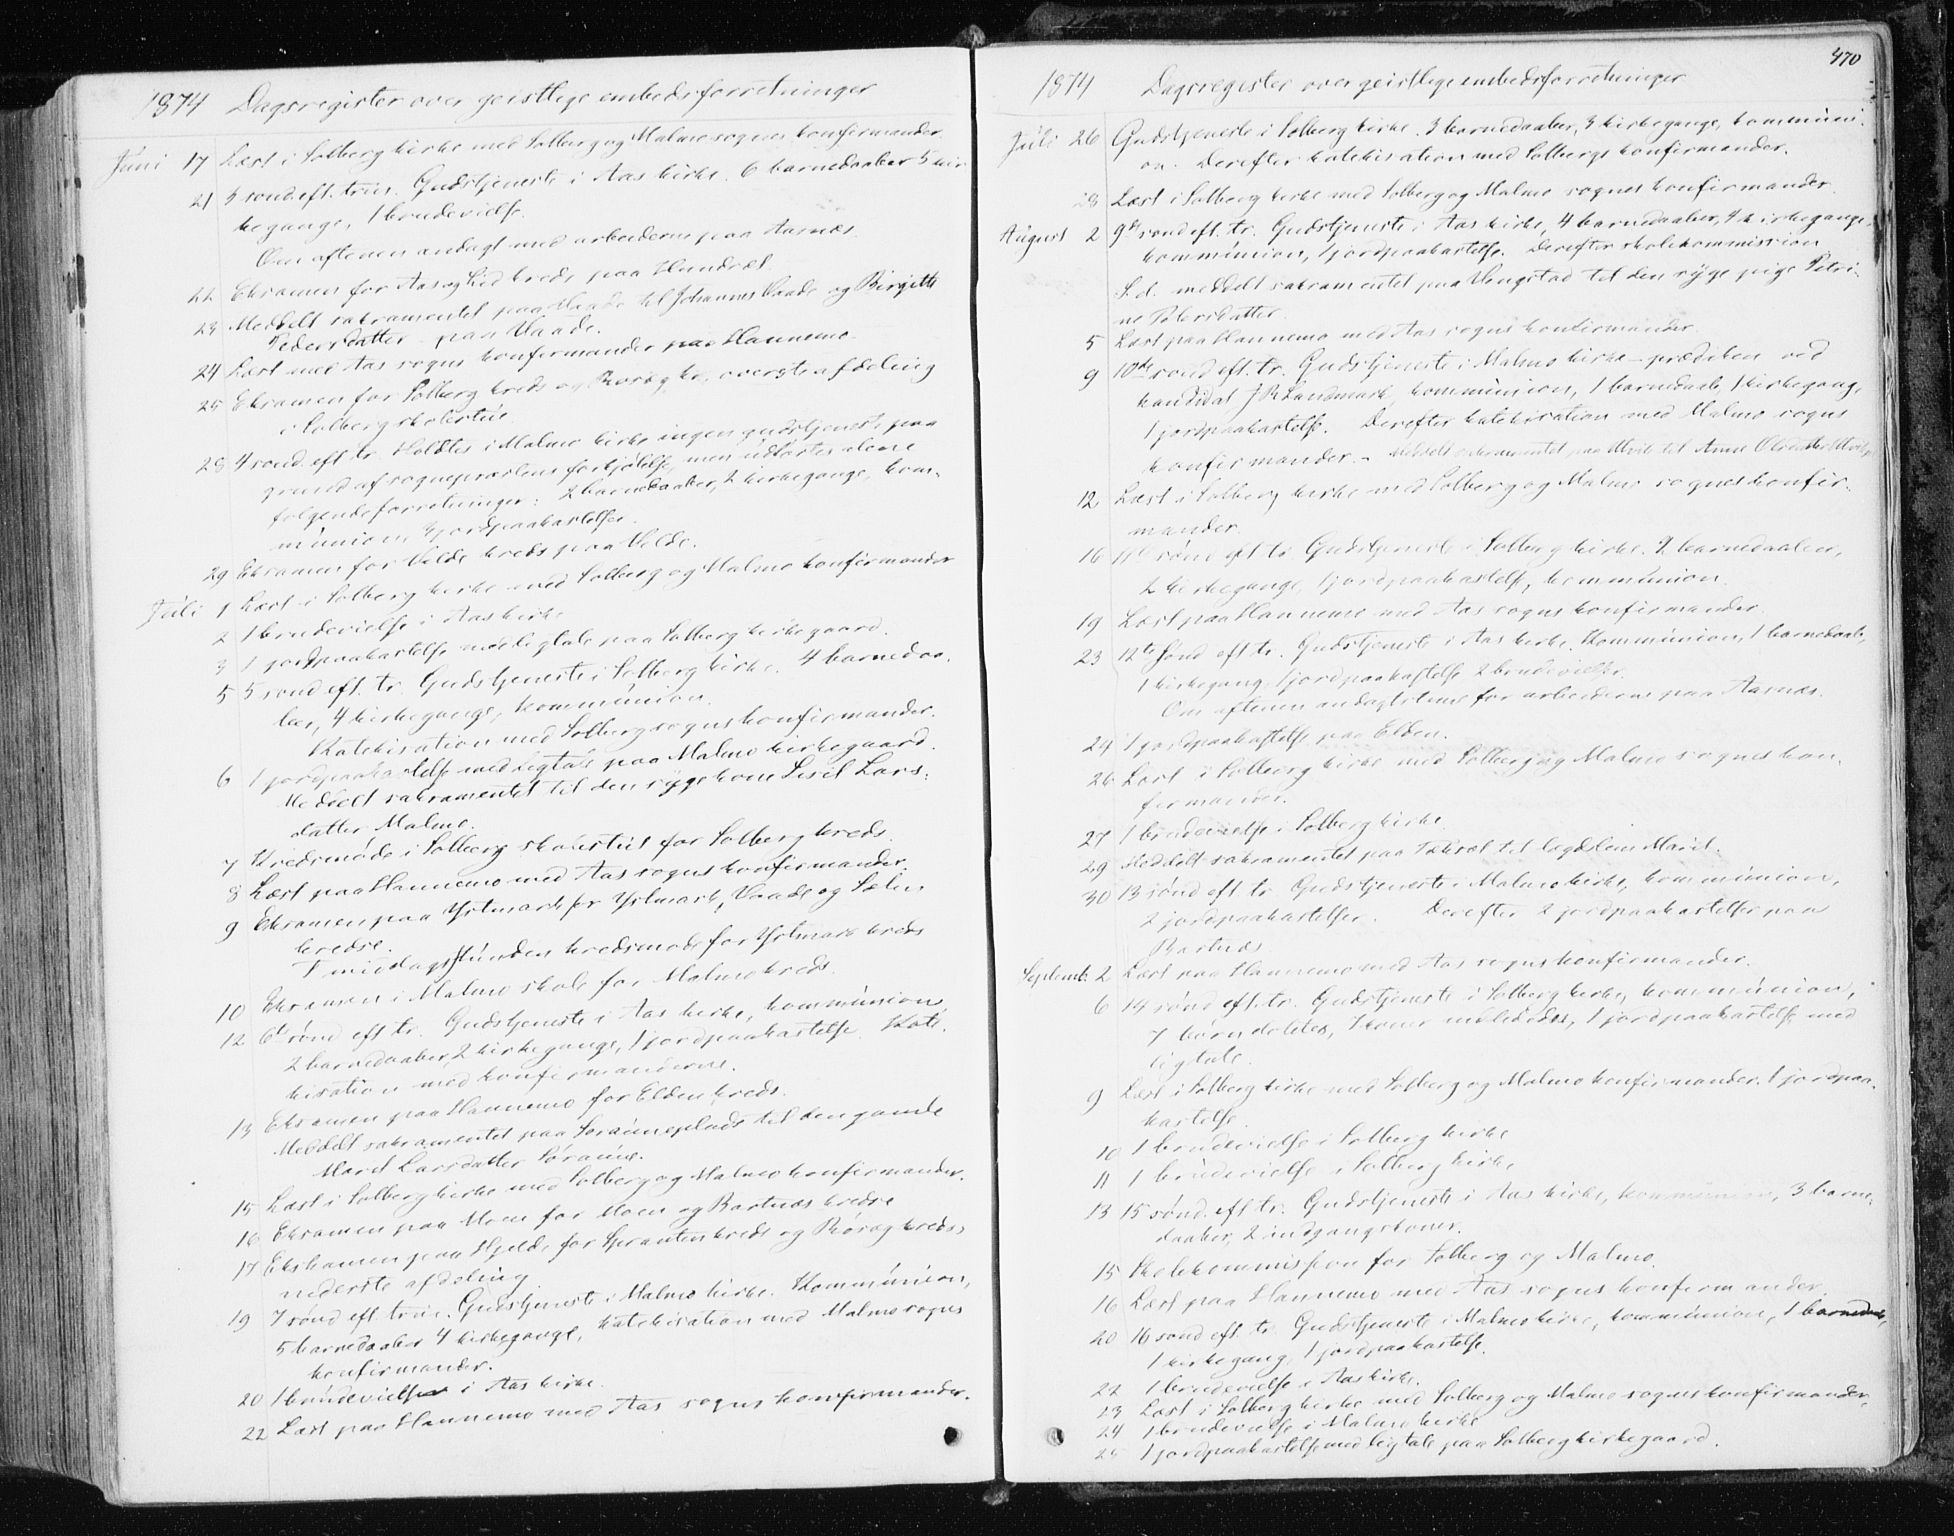 1874 Dagsregister over geistlige embedsforretninger
Juni 17 Læst i Solberg kirke med Solberg og Malmo sognes konfirmander
21 3 sønd. eft. trin. Gudstjeneste i Aas kirke. 6 barnedaaber 5 kir-
kegange, 1 brudevielse.
Om aftenen andagt med arbeiderne paa Aasnæs.
22 Eksamen for Aas og Lid kreds paa Hundsæt
23 Meddelt sakramentet paa Vaade til Johannes Vaade og Birgitte
Pedersdatter paa Vaade.
24 Læst med Aas sogns konfirmander paa Hannemo.
25 Eksamen for Solberg kreds og kr. øverste afdeling
i Solberg skolestue
28 4 sønd. eft. tr. Holdtes i Malmo kirke ingen gudstjeneste paa
grund af sognepræstens forkjølelse, men udførtes alene
følgende forretninger: 2 barnedaaber, 2 kirkegange, kom-
munion 3 jordpaakastelser.
29 Eksamen for Velde kreds paa Velde.
Juli 1 Læst i Solberg kirke med Solberg og Malmo konfirmander
2 1 brudevielse i Aas kirke
3 1 jordpaakastelse med ligtale paa Solberg kirkegaard.
5 5 sønd. eft. tr. Gudstjeneste i Solberg kirke. 4 barnedaa-
ber, 4 kirkegange, kommunion.
Katekisation med Solberg sogns konfirmander.
6 1 jordpaakastelse med ligtale paa Malmo kirkegaard.
Meddelt sakramentet til den syge kone Sisil Lars-
datter Malmo.
7 Kredsmøde i Solberg skolestue for Solberg kreds.
8 Læst paa Hannemo med Aas sogns konfirmander.
9 Eksamen paa Østmark for Østmark, Vaade og Sæln
kredse.
I middagsstunden kredsmøde for Østmark kreds
10 Eksamen i Malmo skole for Malmo kreds.
12 6te sønd. eft. tr. Gudstjeneste i Aas kirke, kommunion
2 barnedaaber, 2 kirkegange, 1 jordpaakastelse. Kate-
kisation med konfirmanderne.
13 Eksamen paa Hannemo for Elden kreds.
Meddelt sakramentet paa til den gamle
Marit Larsdatter
15 Læst i Solberg kirke med Solberg og Malmo konfirmander.
16 Eksamen paa Moen for Moen og Bartnæs kredse
17 Eksamen paa Hjelde for kreds og kreds,
nederste afdeling
19 7 sønd. eft. trin. Gudstjeneste i Malmo kirke. Kommunion,
5 barnedaaber 4 kirkegange, katekisation med Malmo sogns
konfirmander.
20 1 brudevielse i Aas kirke.
22 Læst paa Hannemo med Aas sogns konfirmander.
470
1874 Dagsregister over geistlige embedsforretninger
Juli 26 Gudstjeneste i Solberg kirke. 3 barnedaaber, 3 kirkegange, kommuni-
on. Derefter katekisation med Solbergs konfirmander.
28 Læst i Solberg kirke med Solberg og Malmo sognes konfirmander.
August 2 9de sønd. eft. tr. Gudstjeneste i Aas kirke, 4 barnedaaber, 4 kirkegange,
kommunion, 1 jordpaakastelse. Derefter skolekommission
S. d. meddelt sakramentet paa Vengstad til den syge pige Petri-
ne Petersdatter
5 Læst paa Hannemo med Aas sogns konfirmander.
9 10de sønd. eft. tr. Gudstjeneste i Malmo kirke – prædiken ved
kandidat J R Landmark, kommunion, 1 barnedaab, 1 kirkegang,
1 jordpaakastelse. Derefter katekisation med Malmo sogns
konfirmander. – Meddelt sakramentet paa til Anne Olsdatter
12 Læst i Solberg kirke med Solberg og Malmo sognes konfir-
mander.
16 11te sønd. eft. tr. Gudstjeneste i Solberg kirke. 2 barnedaaber,
2 kirkegange, 1 jordpaakastelse, kommunion.
19 Læst paa Hannemo med Aas sogns konfirmander.
23 12te sønd. eft. tr. Gudstjeneste i Aas kirke. Kommunion, 1 barnedaab,
1 kirkegang, 1 jordpaakastelse 2 brudevielser.
Om aftenen andagtstime for arbeiderne paa Aasnæs.
24 1 jordpaakastelse paa Elden.
26 Læst i Solberg kirke med Solberg og Malmo sognes kon-
firmander.
27 1 brudevielse i Solberg kirke
29 Meddelt sakramentet paa til lægdslem Marit.
30 13 sønd. eft. tr. Gudstjeneste i Malmo kirke, kommunion,
2 jordpaakastelser. Derefter 2 jordpaakastelser paa
Bartnæs
Septemb. 2 Læst paa Hannemo med Aas sogns konfirmander.
6 14 sønd. eft. tr. Gudstjeneste i Solberg kirke, kommunion,
7 børn døbtes, 7 koner indlededes, 1 jordpaakastelse med
ligtale.
9 Læst i Solberg kirke med Solberg og Malmo konfirmander. 1 jordpaa-
kastelse.
10 1 brudevielse i Solberg kirke
11 1 brudevielse i Solberg kirke
13 15 sønd. eft. tr. Gudstjeneste i Aas kirke, kommunion, 3 barne-
daaber, 2 indgangskoner.
15 Skolekommission for Solberg og Malmo.
16 Læst paa Hannemo med Aas sogns konfirmander.
20 16 sønd. eft. tr. Gudstjeneste i Malmo kirke, kommunion, 1 barnedaab,
1 kirkegang, 1 jordpaakastelse.
22 1 brudevielse i Aas kirke.
23 Læst i Solberg kirke med Solberg og Malmo sognes konfirmander,
24 1 brudevielse i Malmo kirke
25 1 jordpaakastelse med ligtale paa Solberg kirkegaard.